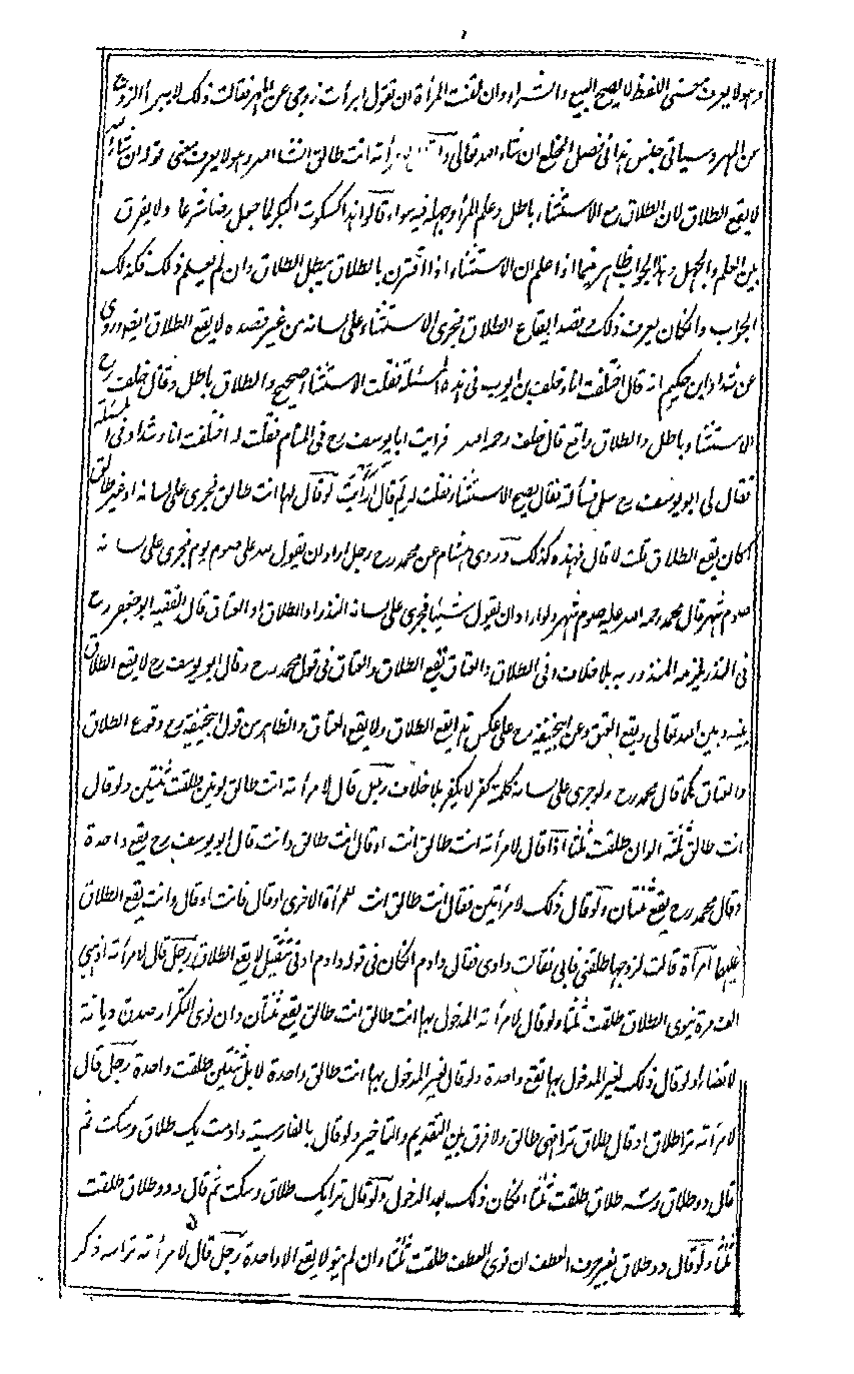 وهو لا يعرف معنى اللفظ لا يصح البيع والشراء وان لقنت المرأة ان تقول ابرأت زوجى عن المهر فقالت ذلك لا يبرأ الزوج
عن المهر وسياتى جنس هذا فى فصل الخلع ان شاء الله تعالى انت طالق انشا الله وهو لا يعرف معنى قوله ان شاء الله
لا يقع الطلاق لان الطلاق مع الاستثناء باطل وعلم المرء وجهله فيه سواء قالوا هذا كسكوت البكر لما جعل رضا شرعا ولا يفرق
بين العلم والجهل وهذا الجواب ظاهر فيما اذا علم ان الاستثناء اذا اقترن بالطلاق يبطل الطلاق وان لم يعلم ذلك فكذلك
الجواب والكان يعرف ذلك يقصد ايقاع الطلاق فجرى الاستثناء على لسانه من غير قصده لا يقع الطلاق ايضا وروى
عن شداد ابن حكيم انه قال اختلفت انا وخلف بن ايوب فى هذه المسئلة فقلت الاستثناء صحيح والطلاق باطل وقال خلف رح
الاستثناء باطل والطلاق واقع قال خلف رحمه الله فرايت ابا يوسف رح فى المنام فقلت له اختلفت انا وشداد فى المسئلة
فقال لى ابو يوسف رح سل فسألته فقال يصح الاستثناء فقلت له لم قال أرأيت لو قال لها انت طالق فجرى على لسانه او غير طالق
اكان يقع الطلاق قلت لا قال فهذه كذلك وروى هشام عن محمد رح رجل اراد ان يقول لله على صوم يوم فجرى على لسانه
صوم شهر قال محمد رحمه الله عليه صوم شهر ولو اراد ان يقول شيئا فجرى على لسانه النذر او الطلاق او العتاق قال الفقيه ابو جعفر رح
فى النذر يلزمه المنذور به بلا خلاف وفى الطلاق والعتاق يقع الطلاق والعتاق فى قول محمد رح وقال ابو يوسف رح لا يقع الطلاق
بينه وبين الله تعالى ويقع العتق وعن ابيحنيفة رح على عكس هذا يقع الطلاق ولا يقع العتاق والظاهر من قول ابيحنيفة رح وقوع الطلاق
والعتاق كما قال محمد رح ولو جرى على لسانه كلمة كفر لا يكفر بلا خلاف رجل قال لامرأته انت طالق لونين طلقت ثنتين ولو قال
انت طالق ثلثة الوان طلقت ثلثا اذا قال لامرأته انت طالق انت او قال انت طالق وانت قال ابو يوسف رح يقع واحدة
وقال محمد رح يقع ثنتان ولو قال ذلك لامرأتين فقال انت طالق انت للمرأة الاخرى او قال فانت او قال وانت يقع الطلاق
عليهما امرأة قالت لزوجها طلقنى فابى فقالت دادى فقال دادم الكان فى قوله دادم ادنى تثقيل لا يقع الطلاق رجل قال لامرأته اذهبى
الف مرة ينوى الطلاق طلقت ثلثا ولو قال لامرأته المدخول بها انت طالق انت طالق يقع ثنتان وان نوى التكرار صدق ديانة
لا قضاء ولو قال ذلك لغير المدخول بها تقع واحدة ولو قال لغير المدخول بها انت طالق واحدة لا بل ثنتين طلقت واحدة رجل قال
لامرأته ترا طلاق او قال طلاق ترا فهى طالق ولا فرق بين التقديم والتأخير ولو قال بالفارسية دادمت يك طلاق وسكت ثم
قال دو طلاق وسه طلاق طلقت ثلثا الكان ذلك بعد الدخول ولو قال ترا يك طلاق وسكت ثم قال ودو طلاق طلقت
ثلثا ولو قال دو طلاق بغير حرف العطف ان نوى العطف طلقت ثلثا وان لم ينو لا يقع الا واحدة رجل قال لامرأته ترا سه ذكر